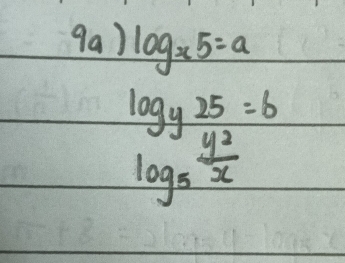 9a) logₓ5 = a
log_y 25 = b
log₅ y²/x